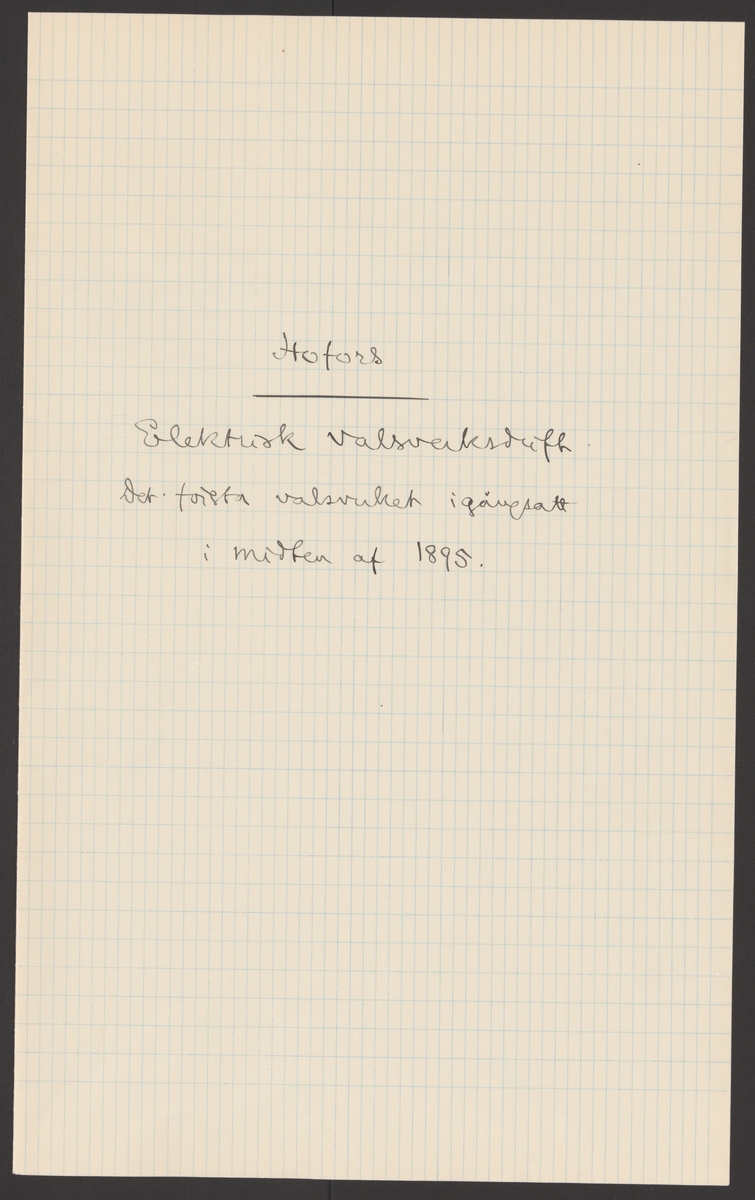 Hofors
Elektrisk valsverksdrift.
Det första valsverket igångsatt
i midten af 1895.